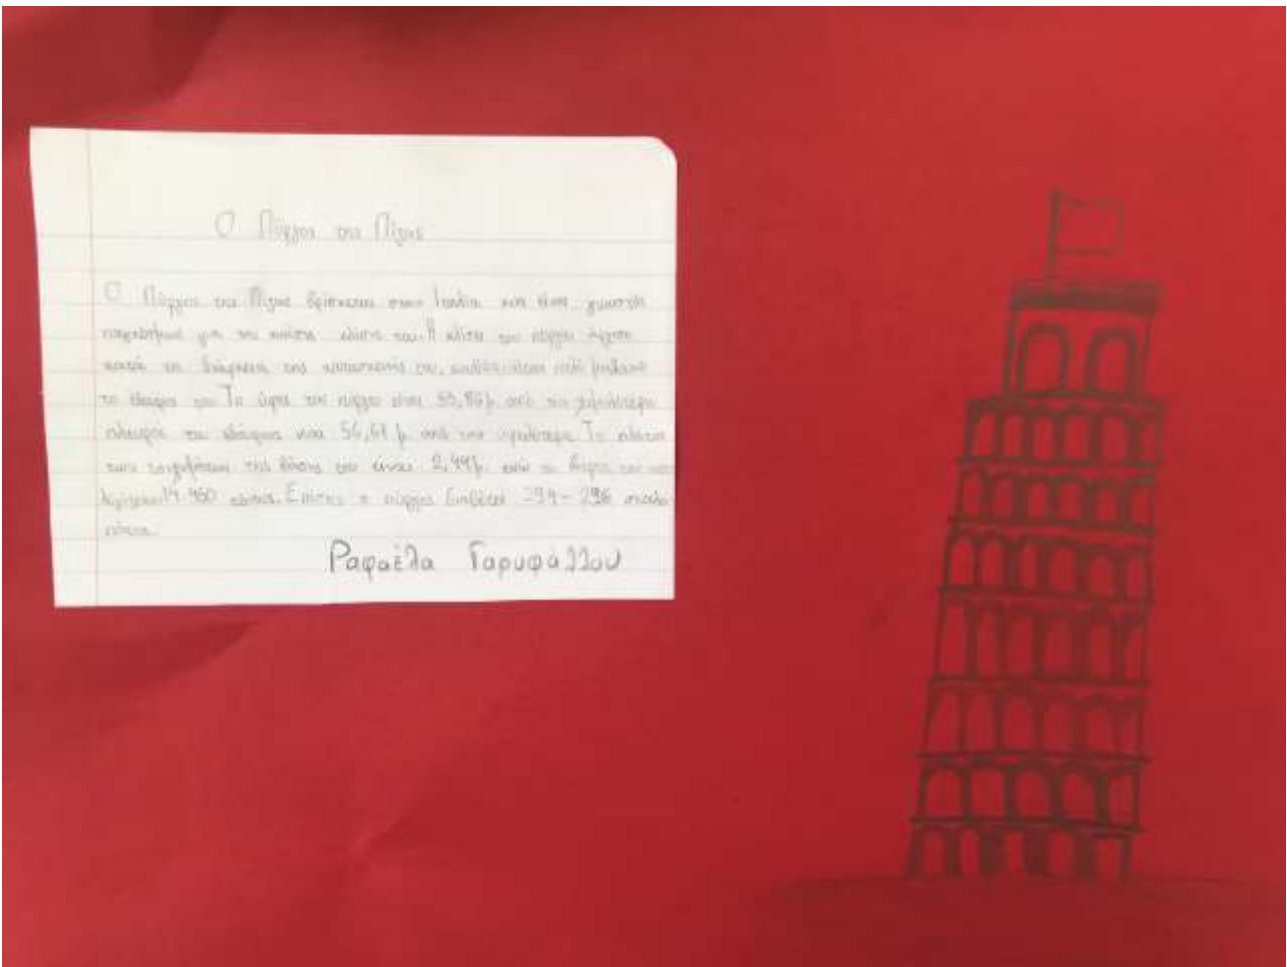 Ο Πύργος της Πίζας
Ο Πύργος της Πίζας βρίσκεται στην Ιταλία και είναι γνωστός
παγκοσμίως για την κλίση του. Η κλίση του πύργου άρχισε
κατά τη διάρκεια της κατασκευής του, καθώς ήταν πολύ μαλακό
το έδαφος του. Το ύψος του πύργου είναι 55,86 μ. από τη χαμηλότερη
πλευρά του εδάφους και 56,67 μ. από την υψηλότερη. Το πλάτος
των τοιχωμάτων της βάσης του είναι 2,44 μ. ενώ το βάρος του
14.450 τόνους. Επίσης ο πύργος διαθέτει 294-296 σκαλο-
πάτια.
Ραφαέλα Γαρυφάλλου